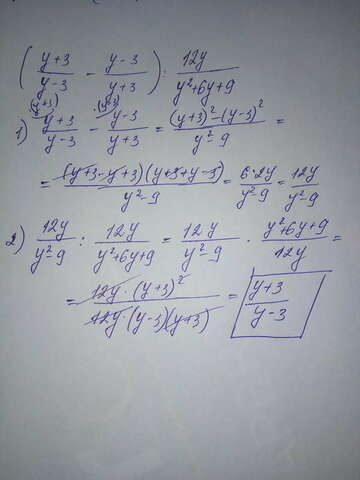 ( (y+3)/(y-3) - (y-3)/(y+3) ) : 12y/(y²+6y+9)
1) (y+3)/(y-3) - (y-3)/(y+3) = ((y+3)²-(y-3)²)/(y²-9) =
= (y+3-y+3)(y+3+y-3)/(y²-9) = 6·2y/(y²-9) = 12y/(y²-9)
2) 12y/(y²-9) : 12y/(y²+6y+9) = 12y/(y²-9) · (y²+6y+9)/12y =
= 12y·(y+3)²/(12y·(y-3)(y+3)) = (y+3)/(y-3)